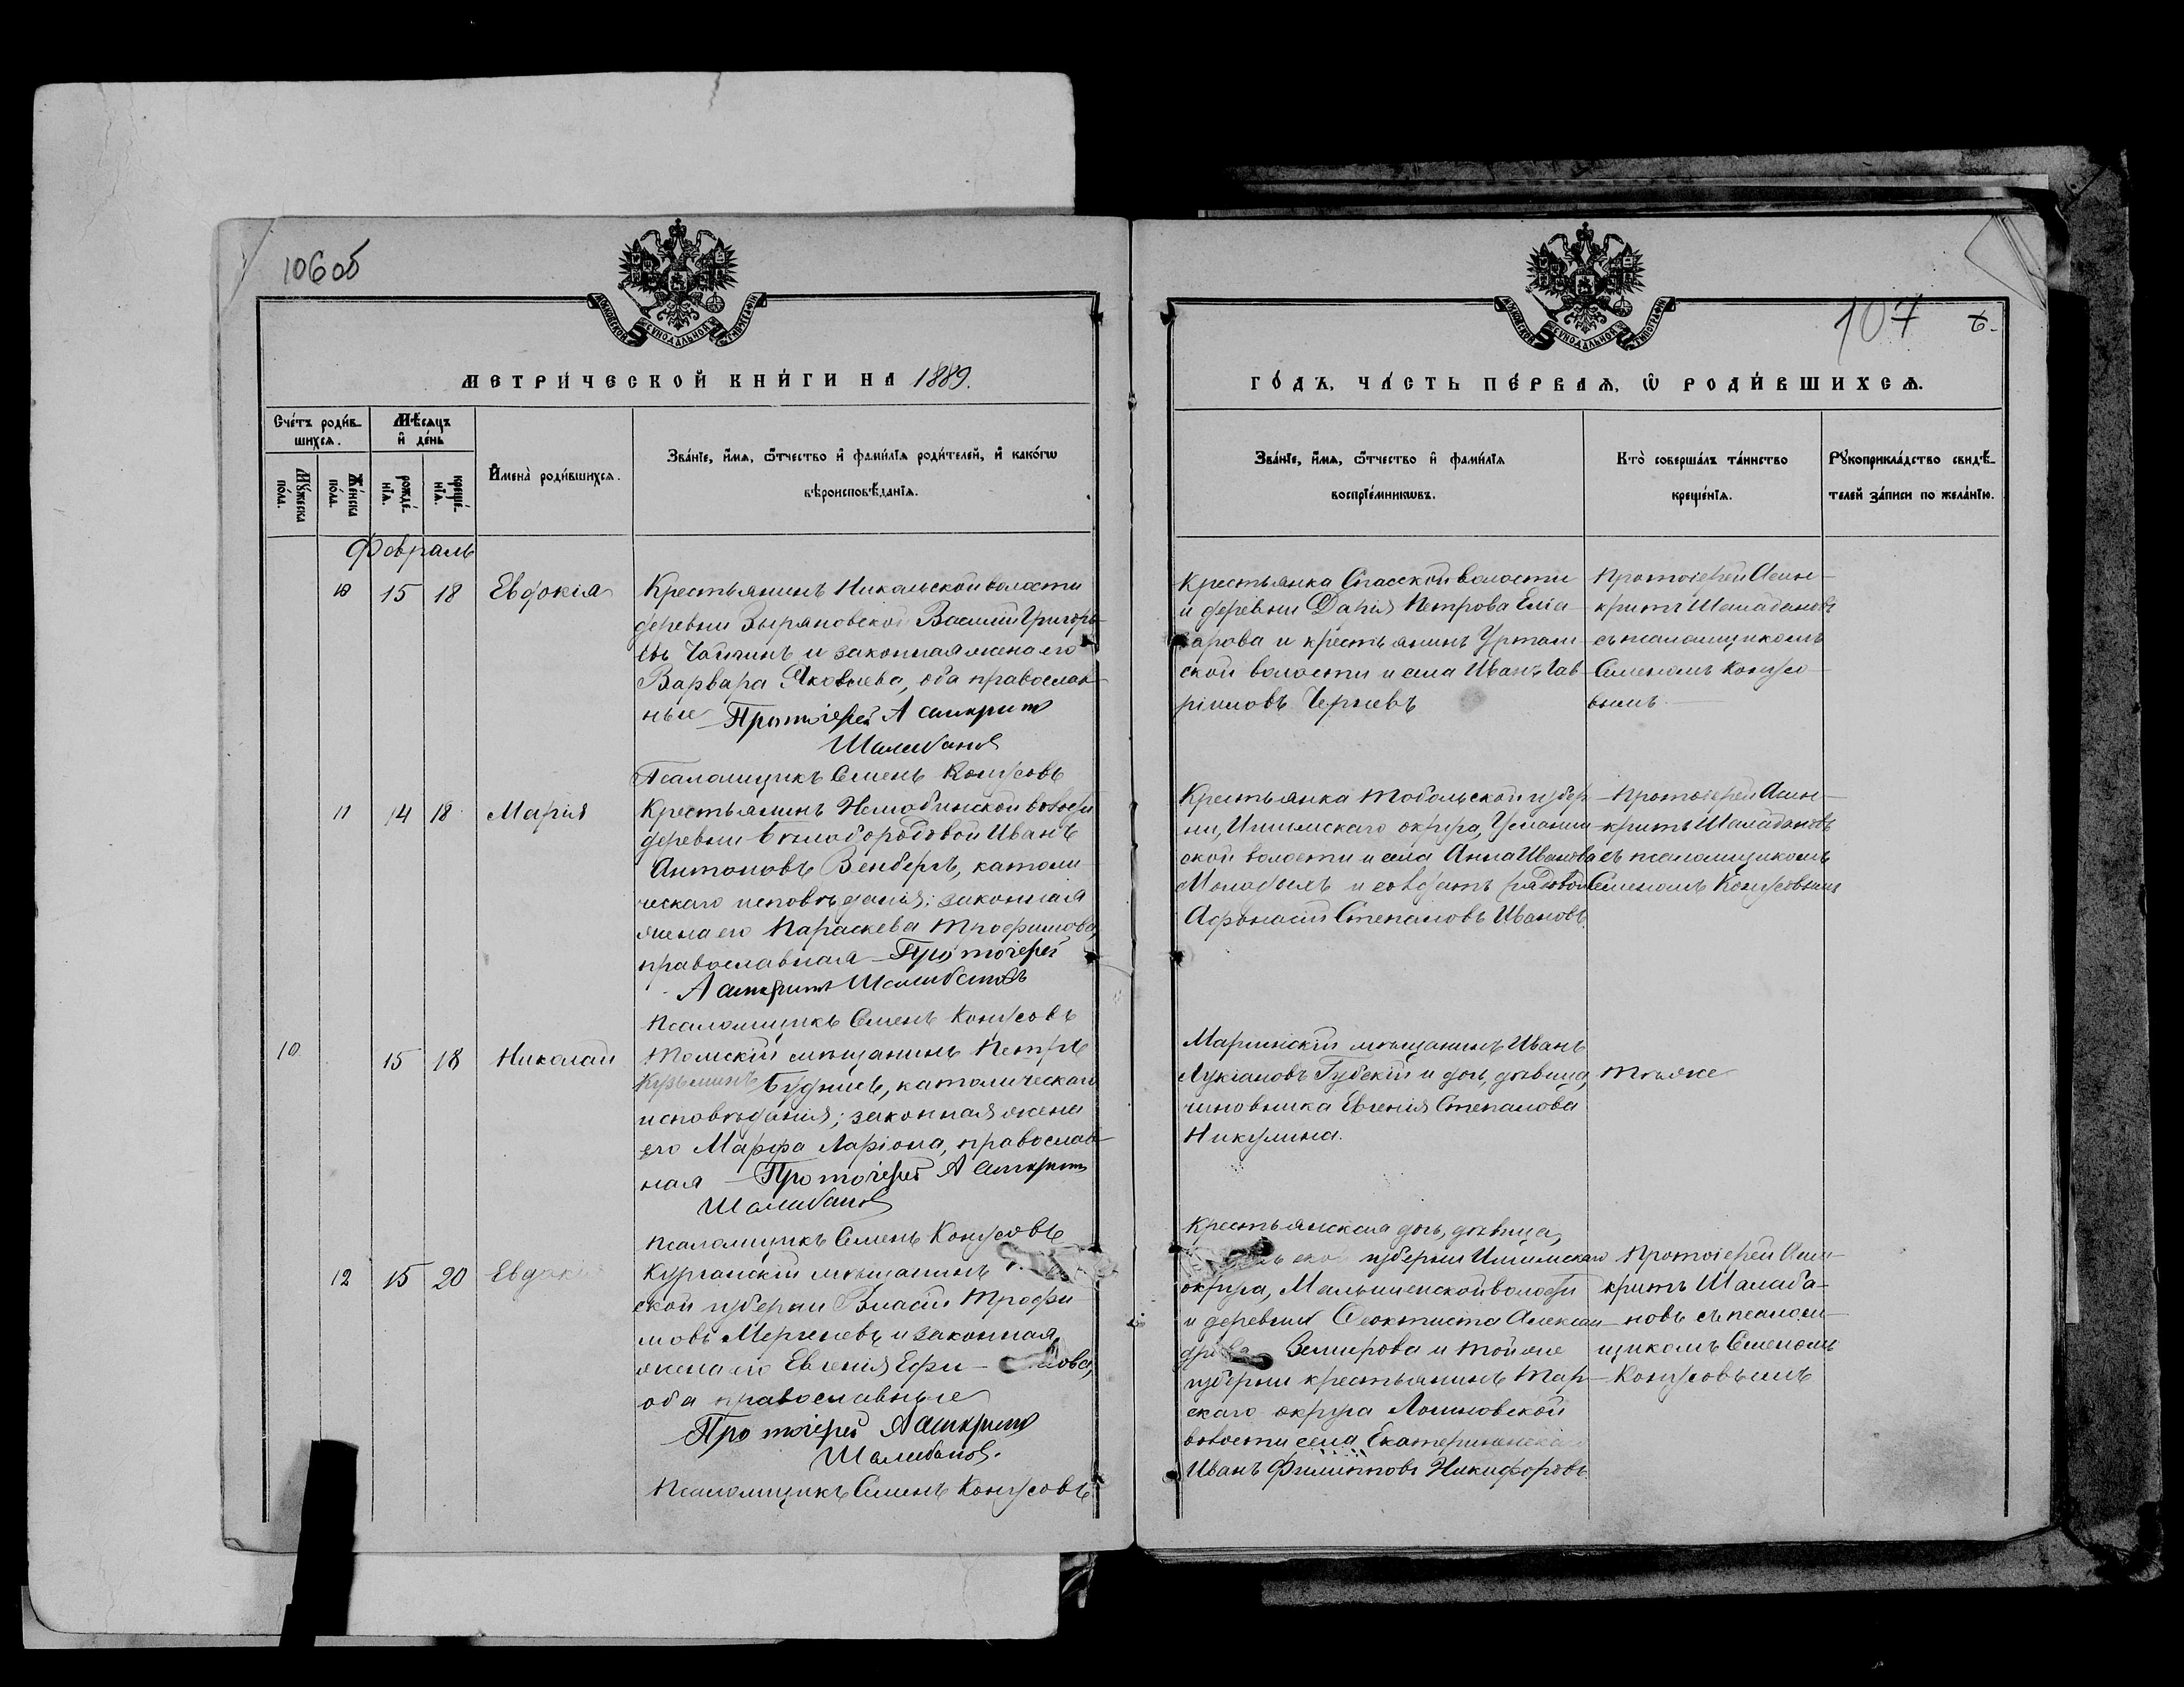 106об
МОСКОВСКОЙ СѴНОДАЛЬНОЙ ТИПОГРАФІИ
МЕТРИ́ЧЕСКОЙ КНИ́ГИ НА 1889.
Сче́тъ роди́вшихся.
Мѣ́сяцъ и҆ де́нь
Му́жеска по́ла.
Же́нска по́ла.
рожде́нїя.
креще́нїя.
И҆мена̀ роди́вшихся.
Зва́нїе, и҆́мя, ѿтчество и҆ фами́лїя роди́телей, и҆ како́гѡ
вѣроисповѣ́данїя.
Февраль
10 15 18 Евдокія
Крестьянинъ Никольской волости
деревни Зыряновской Василій Григорь-
евъ и законная жена его
Варвара Яковлева, оба православ-
ные Протоіерей Асинкритъ
Шалабановъ
Псаломщикъ Семенъ Конусовъ
11 14 18 Марія
Крестьянинъ Нелюбинской волости
деревни Бѣлобородовой Иванъ
Антоновъ Венберъ, католи-
ческаго исповѣданія; законная
жена его Параскева Трофимова,
православная Протоіерей
Асинкритъ Шалабановъ
Псаломщикъ Семенъ Конусовъ
10 15 18 Николай
Томскій мѣщанинъ Петръ
Кузьминъ католическаго
исповѣданія; законная жена
его Марфа Ларіона, православ-
ная Протоіерей Асинкритъ
Шалабановъ
Псаломщикъ Семенъ Конусовъ
12 15 20 Евдокія
Курганскій мѣщанинъ
ской губерніи Власій Трофи-
мовъ и законная
жена его Евгенія Ефи-мова,
оба православные
Протоіерей Асинкритъ
Шалабановъ.
Псаломщикъ Семенъ Конусовъ
107 6.
МОСКОВСКОЙ СѴНОДАЛЬНОЙ ТИПОГРАФІИ
ГО́ДЪ, ЧА́СТЬ ПЕ́РВАЯ, Ѡ҆ РОДИ́ВШИХСЯ.
Зва́нїе, и҆́мя, ѿтчество и҆ фами́лїя
воспрїе́мникѡвъ.
Кто̀ соверша́лъ та́инство
креще́нїя.
Рꙋкоприкла́дство свидѣ́-
телей за́писи по жела́нїю.
Крестьянка Спасской волости
и деревни Дарія Петрова Елиа-
зарова и крестьянинъ Уртам-
ской волости и села Иванъ Гав-
ріиловъ
Протоіерей Асин-
критъ Шалабановъ
съ псаломщикомъ
Семеномъ Конусо-
вымъ
Крестьянка Тобольской губер-
ни, Ишимскаго округа,
ской волости и села Анна Иванова
Молодыхъ и солдатъ рядовой
Афонасій Степановъ Ивановъ.
Протоіерей Асин-
критъ Шалабановъ
съ псаломщикомъ
Семеномъ Конусовымъ
Маріинскій мѣщанинъ Иванъ
Лукіановъ Губскій и дочь, дѣвица,
чиновника Евгенія Степанова
Никулина.
Тѣ же
Крестьянская дочь, дѣвица,
губерніи Ишимскаго
округа, волости
и деревни Феоктиста Алексан-
и той же
губерніи крестьянинъ Тар-
скаго округа Логиновской
волости села
Иванъ Филипповъ Никифоровъ.
Протоіерей Асин-
критъ Шалаба-
новъ съ псаломщикомъ Семеномъ
Конусовымъ